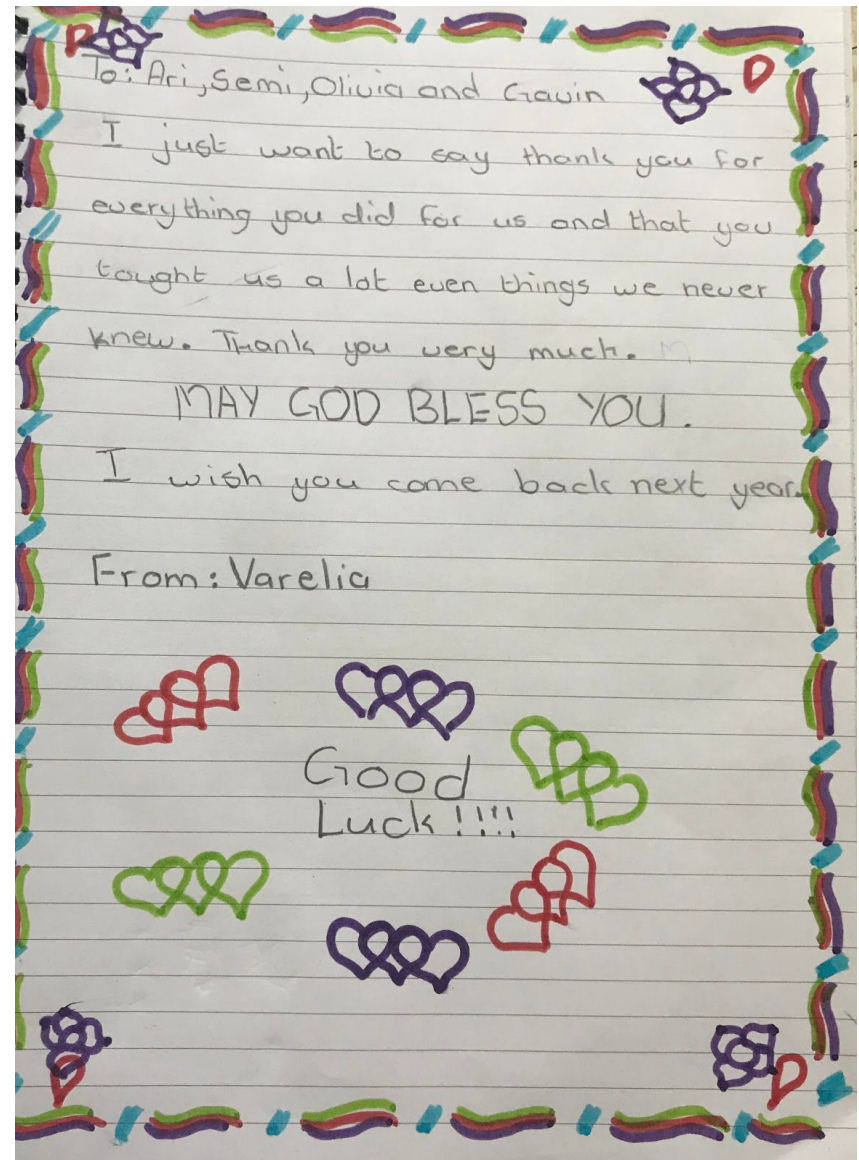 To: Ari, Semi, Olivia and Gavin
I just want to say thank you for
everything you did for us and that you
tought us a lot even things we never
knew. Thank you very much.
MAY GOD BLESS YOU.
I wish you come back next year.
From: Varelia
Good
Luck!!!!